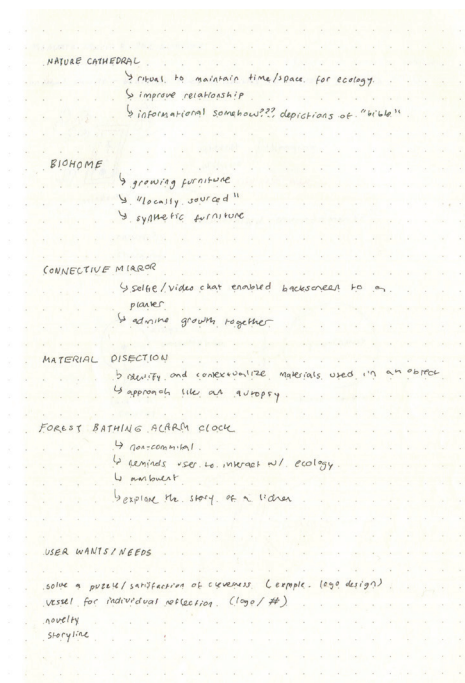 NATURE CATHEDRAL
↳ ritual to maintain time/space for ecology
↳ improve relationship
↳ informational somehow??? depictions of "bible"
BIOHOME
↳ growing furniture
↳ "locally sourced"
↳ synthetic furniture
CONNECTIVE MIRROR
↳ selfie/video chat enabled backscreen to a
planter
↳ admire growth together
MATERIAL DISECTION
↳ identify and contextualize materials used in an object
↳ approach like an autopsy
FOREST BATHING ALARM CLOCK
↳ non-commital
↳ Reminds user to interact w/ ecology
↳ ambient
↳ explore the story of a lichen
USER WANTS/NEEDS
solve a puzzle/satisfaction of cleverness (example. logo design)
vessel for individual reflection (logo/#)
novelty
storyline